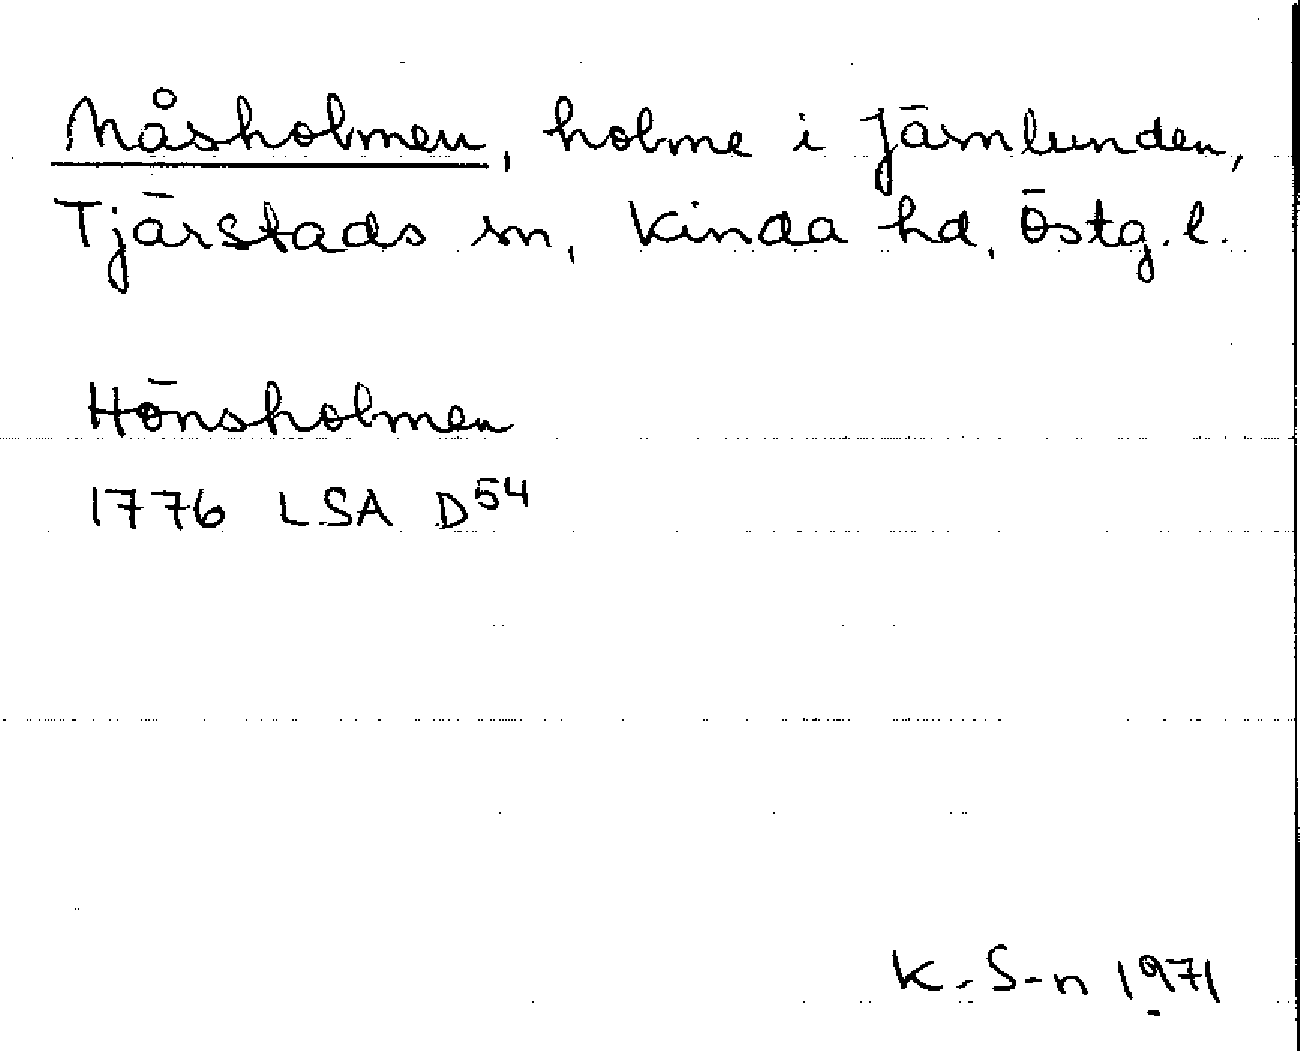 Måsholmen, holme i Järnlunden,
Tjärstads sn, Kinda hd, Östg. l.
Hönsholmen
1776 LSA D54
K. S-n 1971